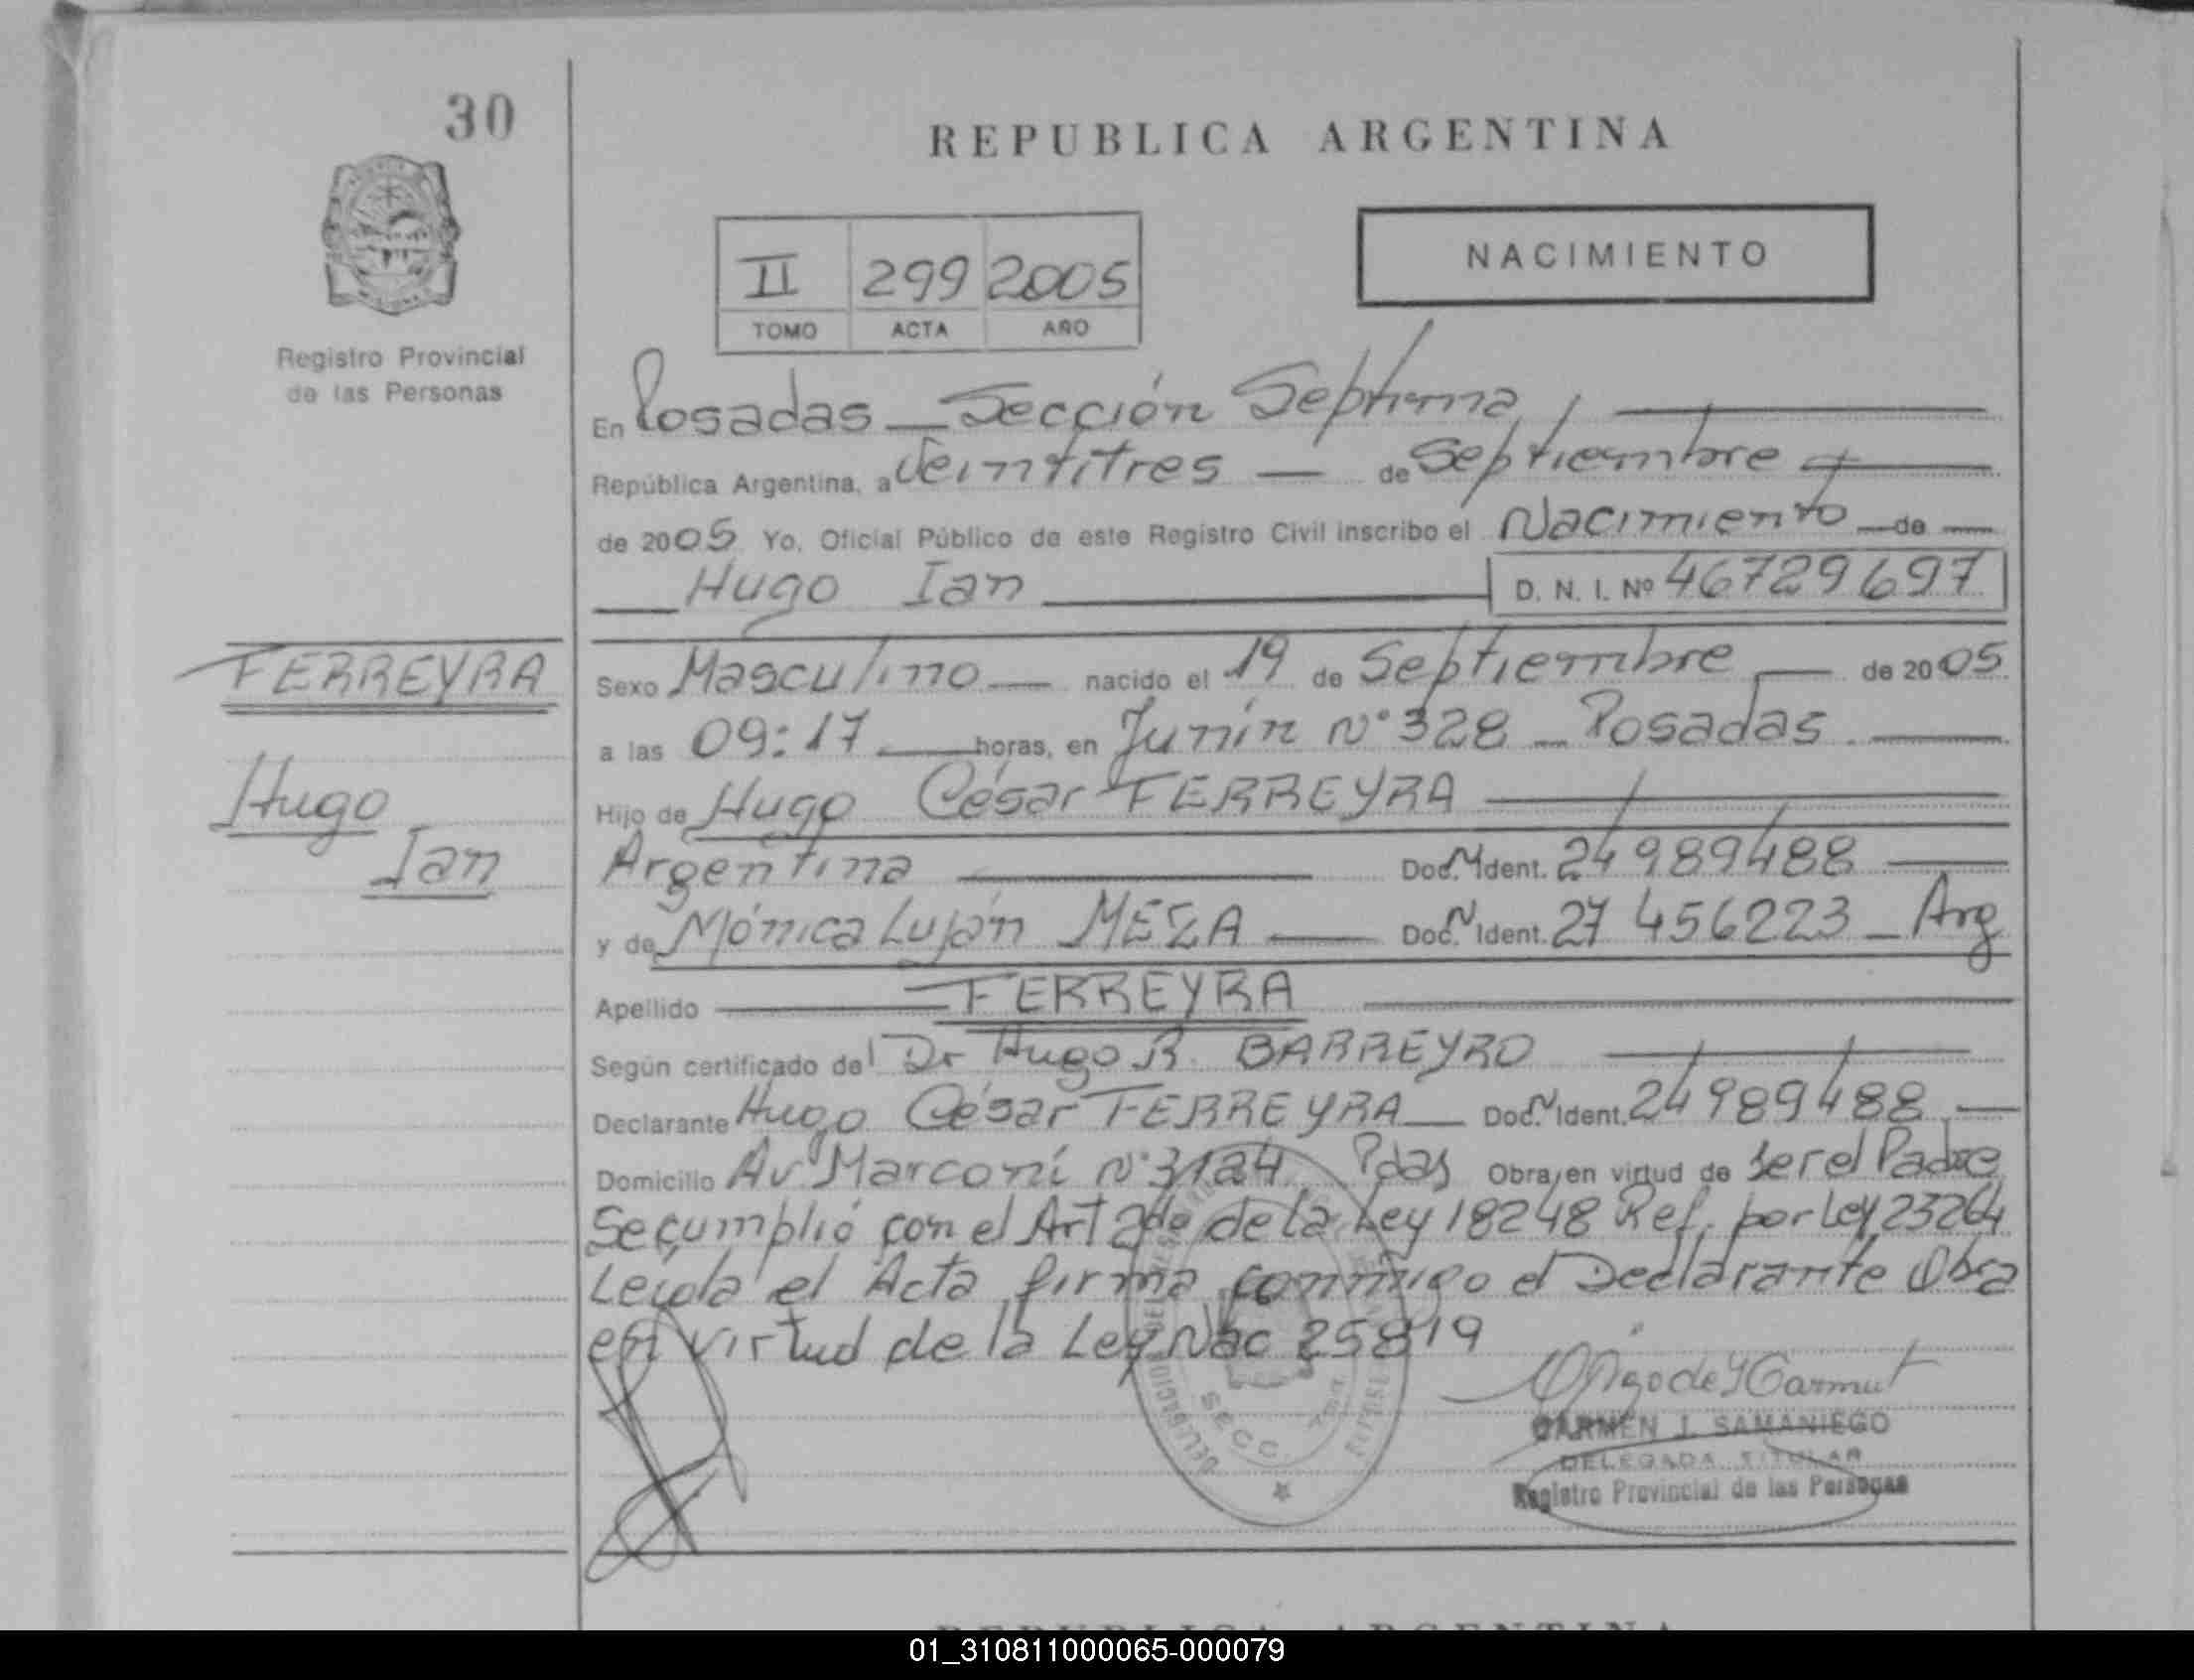 30
REPUBLICA ARGENTINA
NACIMIENTO
II 299 2005
TOMO ACTA AÑO
Registro Provincial
de las Personas
En Posadas — Sección Septima
República Argentina, a Veintitres — de Septiembre
de 2005 Yo, Oficial Público de este Registro Civil inscribo el Nacimiento de
Hugo Ian D. N. I. Nº 46729697
FERREYRA
Hugo
Ian
Sexo Masculino — nacido el 19 de Septiembre — de 2005
a las 09:17 horas, en Junín N° 328 — Posadas
Hijo de Hugo César FERREYRA
Argentina Doc. N Ident. 24989488
y de Mónica Luján MEZA Doc. N Ident. 27 456223 — Arg
Apellido FERREYRA
Según certificado del Dr Hugo R. BARREYRO
Declarante Hugo César FERREYRA Doc. N Ident. 24989488
Domicilio Av Marconi N° 3124 Pdas Obra, en virtud de ser el Padre
Se cumplió con el Art 2do de la Ley 18248 Ref. por Ley 23264
Leída el Acta firma conmigo el Declarante Obra
en virtud de la Ley Nac 25819
SECC.
CARMEN J. SAMANIEGO
DELEGADA TITULAR
Registro Provincial de las Personas
REPUBLICA ARGENTINA
01_310811000065-000079